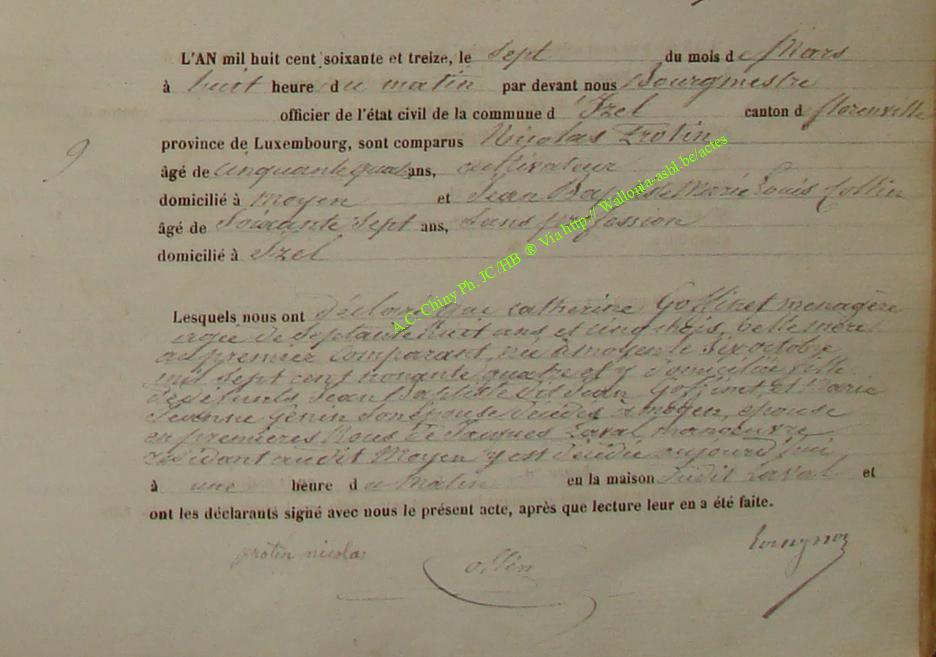 L'AN mil huit cent soixante et treize, le Sept du mois de Mars
à huit heure du matin par devant nous Bourgmestre
officier de l'état civil de la commune d'Izel canton d florenville
9
province de Luxembourg, sont comparus Nicolas Protin
âgé de Cinquante quatre ans, cultivateur
domicilié à Moyen et Jean Baptiste Marie Louis Collin
âgé de Soixante Sept ans, Sans profession
domicilié à Izel
Lesquels nous ont déclaré que Catherine Goffinet menagère
agée de Septante huit ans et cinq mois, belle mère
au premier Comparant, née à moyen le Six octobre
mil Sept cent nonante quatre et y domiciliée fille
des defunts Jean Baptiste dit Jean Goffinet, et Marie
Jeanne Génin Son épouse décédés à moyen, epouse
en premières Noces de Jacques Laval manoeuvre
résidant audit Moyen y est décédée aujourd'hui
à une heure du Matin en la maison dudit Laval et
ont les déclarants signé avec nous le présent acte, après que lecture leur en a été faite.
protin nicolas
Collin
A.C. Chiny Ph. JC /HB ® Via http:// Wallonia-asbl.be/actes